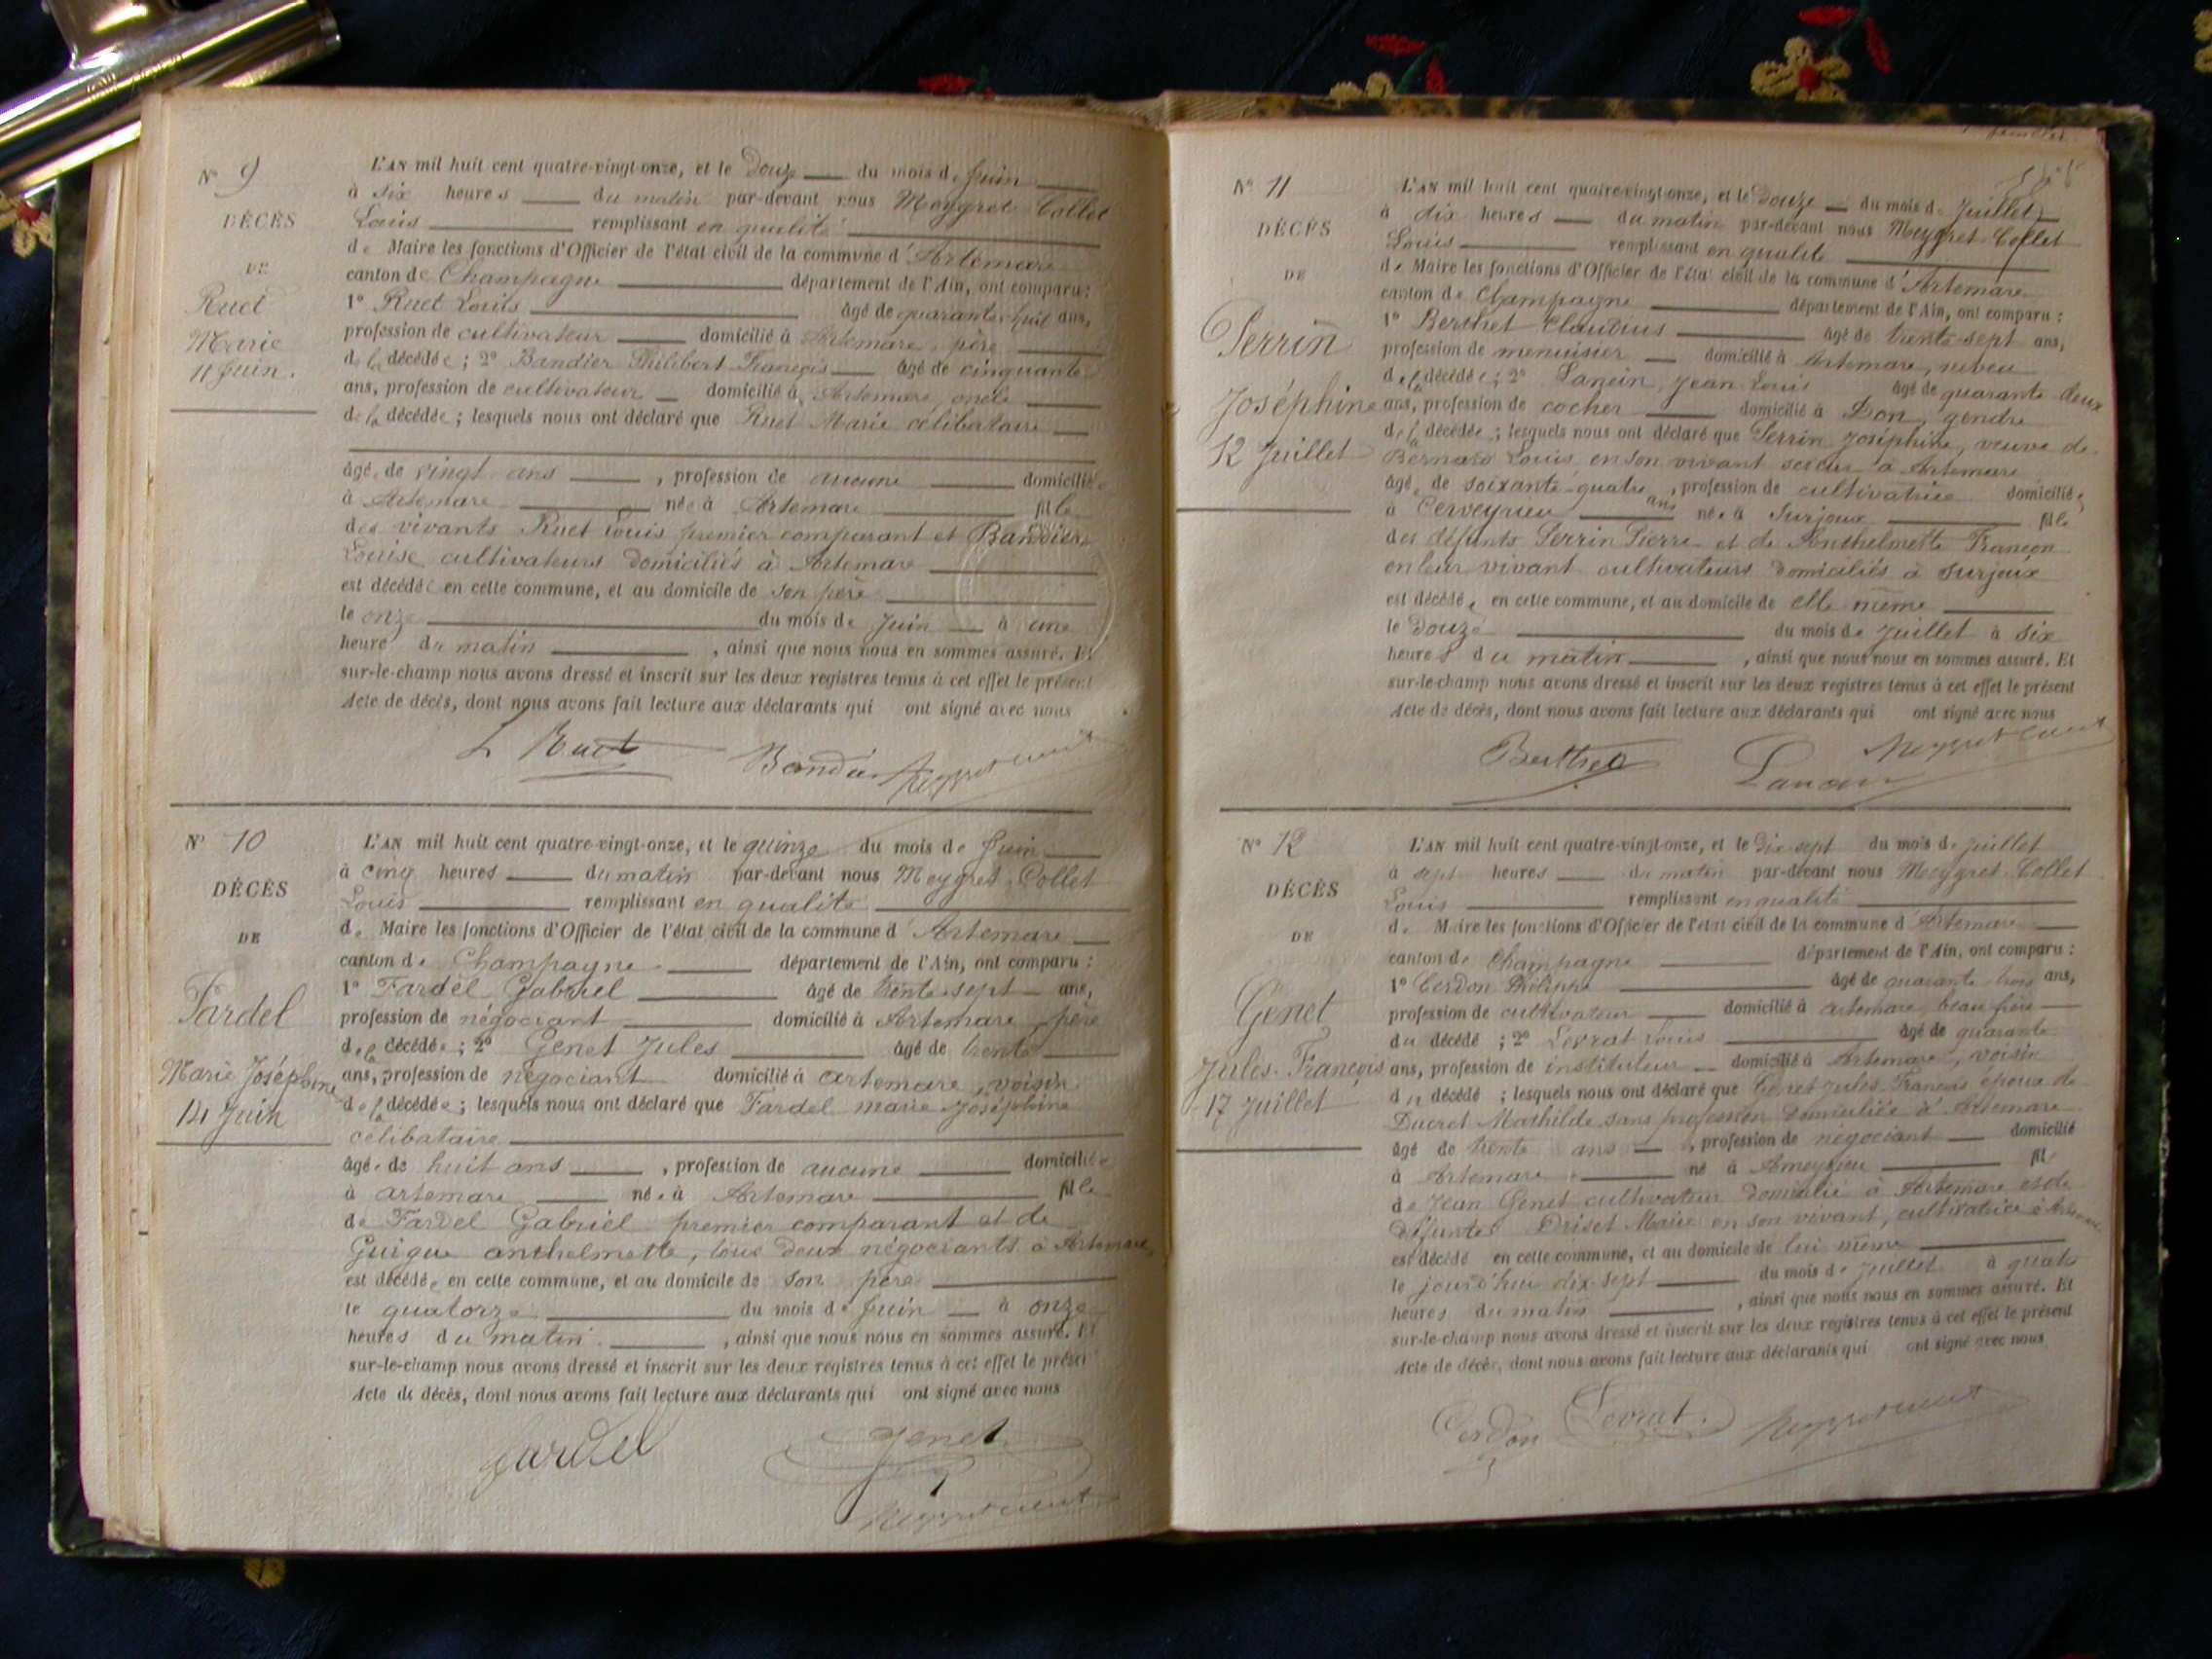 N° 9
DÉCÈS
DE
Ruet
Marie
11 Juin.
L'AN mil huit cent quatre-vingt-onze, et le Douze du mois de Juin
à six heures du matin par-devant nous Meygret Collet
Louis remplissant en qualité
de Maire les fonctions d'Officier de l'état civil de la commune d'Artemare
canton de Champagne département de l'Ain, ont comparu :
1° Ruet Louis âgé de quarante-huit ans,
profession de cultivateur domicilié à Artemare, père
de la décédée ; 2° Bandier Philibert François âgé de cinquante
ans, profession de cultivateur domicilié à Artemare, oncle
de la décédée ; lesquels nous ont déclaré que Ruet Marie célibataire
âgée de vingt ans , profession de aucune domiciliée
à Artemare née à Artemare fille
des vivants Ruet Louis premier comparant et Bandier
Louise cultivateurs domiciliés à Artemare
est décédée en cette commune, et au domicile de son père
le onze du mois de Juin à une
heure du matin , ainsi que nous nous en sommes assuré. Et
sur-le-champ nous avons dressé et inscrit sur les deux registres tenus à cet effet le présent
Acte de décès, dont nous avons fait lecture aux déclarants qui ont signé avec nous
L Ruet Bandier Meygret Collet
N° 10
DÉCÈS
DE
Fardel
Marie Joséphine
14 Juin
L'AN mil huit cent quatre-vingt-onze, et le quinze du mois de Juin
à cinq heures du matin par-devant nous Meygret-Collet
Louis remplissant en qualité
de Maire les fonctions d'Officier de l'état civil de la commune d'Artemare
canton de Champagne département de l'Ain, ont comparu :
1° Fardel Gabriel âgé de trente-sept ans,
profession de négociant domicilié à Artemare, père
de la décédée ; 2° Genet Jules âgé de trente
ans, profession de négociant domicilié à artemare, voisin
de la décédée ; lesquels nous ont déclaré que Fardel marie Joséphine
célibataire
âgée de huit ans , profession de aucune domiciliée
à artemare née à Artemare fille
de Fardel Gabriel premier comparant et de
Guigue anthelmette, tous deux négociants à Artemare,
est décédée en cette commune, et au domicile de son père
le quatorze du mois de Juin à onze
heures du matin , ainsi que nous nous en sommes assuré. Et
sur-le-champ nous avons dressé et inscrit sur les deux registres tenus à cet effet le présent
Acte de décès, dont nous avons fait lecture aux déclarants qui ont signé avec nous
Fardel Genet
Meygret Collet
N° 11
DÉCÈS
DE
Perrin
Joséphine
12 Juillet
L'AN mil huit cent quatre-vingt-onze, et le Douze du mois de Juillet
à dix heures du matin par-devant nous Meygret-Collet
Louis remplissant en qualité
de Maire les fonctions d'Officier de l'état civil de la commune d'Artemare
canton de Champagne département de l'Ain, ont comparu :
1° Berthet Claudius âgé de trente-sept ans,
profession de menuisier domicilié à Artemare, neveu
de la décédée ; 2° Lancin, Jean Louis âgé de quarante deux
ans, profession de cocher domicilié à Don, gendre
de la décédée ; lesquels nous ont déclaré que Perrin Joséphine, veuve de
Bernard Louis en son vivant scieur à Artemare
âgée de soixante-quatre ans , profession de cultivatrice domiciliée
à Cerveyrieu née à Surjoux fille
des défunts Perrin Pierre et de Anthelmette Françon
en leur vivant cultivateurs domiciliés à Surjoux
est décédée en cette commune, et au domicile de elle même
le douze du mois de Juillet à six
heures du matin , ainsi que nous nous en sommes assuré. Et
sur-le-champ nous avons dressé et inscrit sur les deux registres tenus à cet effet le présent
Acte de décès, dont nous avons fait lecture aux déclarants qui ont signé avec nous
Berthet Lancin Meygret Collet
N° 12
DÉCÈS
DE
Genet
Jules-François
17 Juillet
L'AN mil huit cent quatre-vingt-onze, et le Dix-sept du mois de Juillet
à sept heures du matin par-devant nous Meygret-Collet
Louis remplissant en qualité
de Maire les fonctions d'Officier de l'état civil de la commune d'Artemare
canton de Champagne département de l'Ain, ont comparu :
1° Cerdon Philippe âgé de quarante-trois ans,
profession de cultivateur domicilié à artemare, beau frère
du décédé ; 2° Levrat Louis âgé de quarante
ans, profession de instituteur domicilié à Artemare, voisin
du décédé ; lesquels nous ont déclaré que Genet Jules-François époux de
Ducret Mathilde sans profession domiciliée à Artemare
âgé de trente ans , profession de négociant domicilié
à Artemare né à Ameyzieu fils
de Jean Genet cultivateur domicilié à Artemare et de
défunte Marie en son vivant, cultivatrice à Artemare
est décédé en cette commune, et au domicile de lui même
le jourd'hui dix-sept du mois de Juillet à quatre
heures du matin , ainsi que nous nous en sommes assuré. Et
sur-le-champ nous avons dressé et inscrit sur les deux registres tenus à cet effet le présent
Acte de décès, dont nous avons fait lecture aux déclarants qui ont signé avec nous
Cerdon Levrat. Meygret Collet